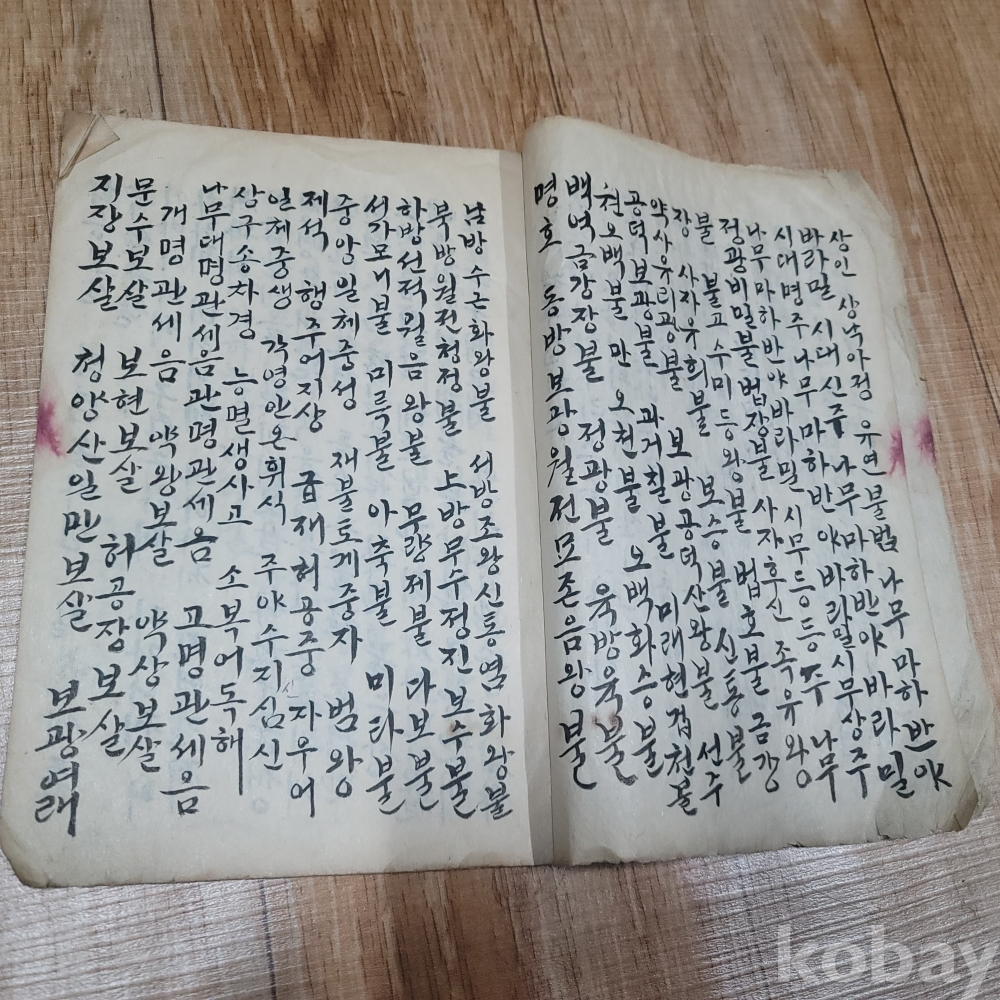 상인 상낙아정 유연불법 나무마하반야
바라밀 시대신주 나무마하반야바라밀
시대명주 나무마하반야바라밀 시무상주
나무마하반야바라밀 시무등등주 나무
정광비밀불 법장불 사자후신족유왕
불 불고수미등왕불 법호불 금강
장 사자유희불 보승불 신통불
약사유리광불 보광공덕산왕불 선주
공덕보광불 과거칠불 미래현겁천불
천오백불 만오천불 오백화승불
백억금강장불 정광불 육방육불
명호 동방보광월전묘존음왕불
남방수근화왕불 서방조왕신통염화왕불
북방월전청정불 上방무수정진보수불
하방선적월음왕불 무량제불 다보불
석가모니불 미륵불 아축불 미타불
중앙일체중성 재불토계중자 범왕
제석 행주어지상 급재허공중 자우어
일체중생 각영안온휘식 주야수지심신
상구송차경 능멸생사고 소복어독해
나무대명관세음관명관세음 고명관세음
개명관세음 약왕보살 약상보살
문수보살 보현보살 허공장보살
지장보살 청양산일만보살 보광여래